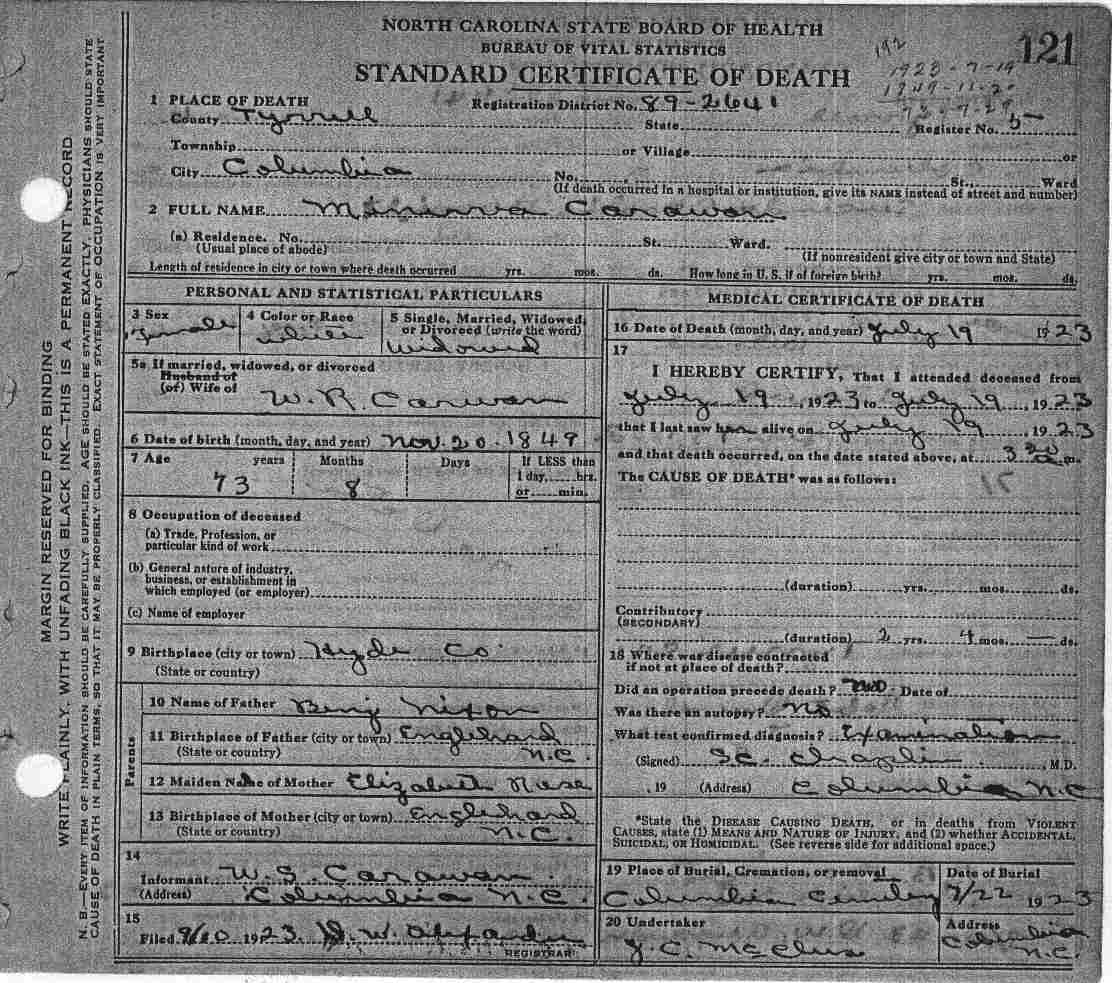 NORTH CAROLINA STATE BOARD OF HEALTH
BUREAU OF VITAL STATISTICS
STANDARD CERTIFICATE OF DEATH
121
192
1923-7-19
1849-11-20
73-7-29
1 PLACE OF DEATH
Registration District No. 89-2641
County Tyrrell State Register No. 5
Township or Village or
City Columbia No. St., Ward
(If death occurred in a hospital or institution, give its NAME instead of street and number)
2 FULL NAME Minerva Carawan
(a) Residence. No. St. Ward.
(Usual place of abode) (If nonresident give city or town and State)
Length of residence in city or town where death occurred yrs. mos. ds. How long in U. S. if of foreign birth? yrs. mos. ds.
PERSONAL AND STATISTICAL PARTICULARS
3 Sex 4 Color or Race 5 Single, Married, Widowed, or Divorced (write the word)
Female white Widowed
5a If married, widowed, or divorced
Husband of
(or) Wife of W. R. Carawan
6 Date of birth (month, day, and year) Nov. 20. 1849
7 Age years Months Days If LESS than
1 day, hrs.
or min.
73 8
8 Occupation of deceased
(a) Trade, Profession, or
particular kind of work
(b) General nature of industry,
business, or establishment in
which employed (or employer)
(c) Name of employer
9 Birthplace (city or town) Hyde Co.
(State or country)
Parents
10 Name of Father Benj Nixon
11 Birthplace of Father (city or town) Englehard
(State or country) N.C.
12 Maiden Name of Mother Elizabeth
13 Birthplace of Mother (city or town) Englehard
(State or country) N.C.
14
Informant W. S. Carawan
(Address) Columbia N.C.
15
Filed 9/10 1923. W.
REGISTRAR
MEDICAL CERTIFICATE OF DEATH
16 Date of Death (month, day, and year) July 19 1923
17
I HEREBY CERTIFY, That I attended deceased from
July 19, 1923 to July 19, 1923
that I last saw her alive on July 19, 1923
and that death occurred, on the date stated above, at 3 30 a m.
The CAUSE OF DEATH* was as follows:
(duration) yrs. mos. ds.
Contributory
(SECONDARY)
(duration) 2 yrs. 4 mos. — ds.
18 Where was disease contracted
if not at place of death?
Did an operation precede death? no Date of
Was there an autopsy? No
What test confirmed diagnosis? Examination
(Signed) S.C. Chaplin, M.D.
, 19 (Address) Columbia N.C.
*State the DISEASE CAUSING DEATH, or in deaths from VIOLENT
CAUSES, state (1) MEANS AND NATURE OF INJURY, and (2) whether ACCIDENTAL,
SUICIDAL, OR HOMICIDAL. (See reverse side for additional space.)
19 Place of Burial, Cremation, or removal Date of Burial
Columbia 7/22 1923
20 Undertaker Address
J. C. Columbia
N.C.
MARGIN RESERVED FOR BINDING
WRITE PLAINLY, WITH UNFADING BLACK INK—THIS IS A PERMANENT RECORD
N. B.—EVERY ITEM OF INFORMATION SHOULD BE CAREFULLY SUPPLIED. AGE SHOULD BE STATED EXACTLY. PHYSICIANS SHOULD STATE
CAUSE OF DEATH IN PLAIN TERMS, SO THAT IT MAY BE PROPERLY CLASSIFIED. EXACT STATEMENT OF OCCUPATION IS VERY IMPORTANT